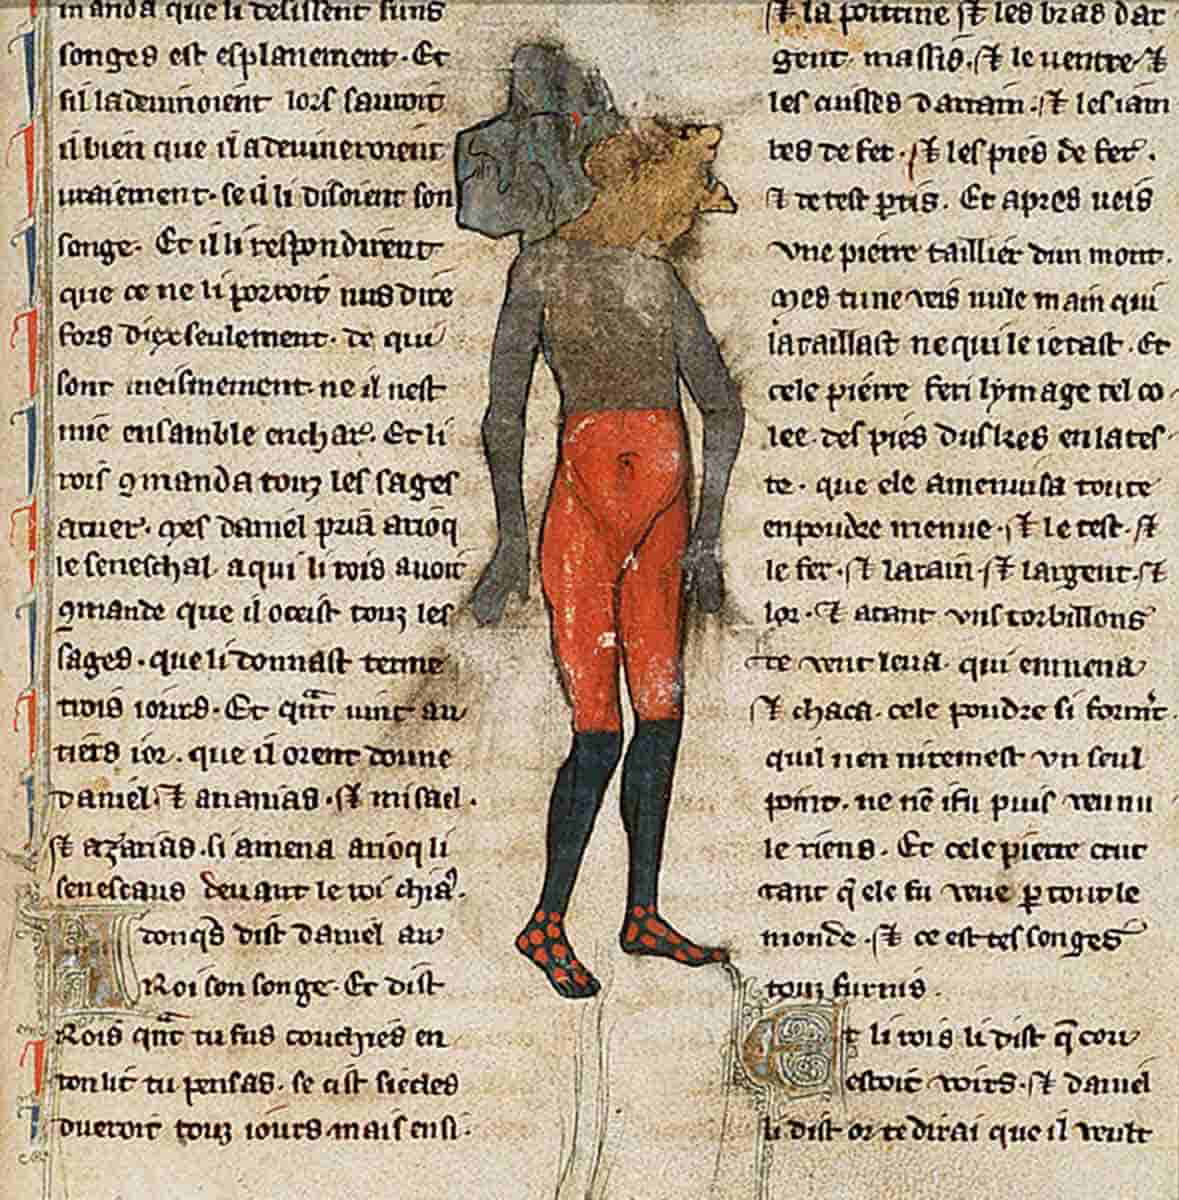 manda que li deissent suns
songes est esplanement. Et
sil la devinoient lors savroit
il bien que il a devineroient
vraiement. se il li disoient son
songe. Et il li respondirent
que ce ne li porroit nus dire
fors diex seulement. de qui
sont meismement ne il nest
mie ensamble en char. Et li
rois 9manda touz les sages
atuer. Mes daniel pria arioq
le seneschal a qui li rois avoit
9mande que il oceist touz les
sages. que li donnast terme
trois iours. Et qnt vint au
tiers ior. que il orent donne
daniel. et ananias. et misael.
et azarias. si amena arioq li
senescaus devant le roi
donqs dist daniel au
Roi son songe. Et dist
Rois qnt tu fus couchies en
ton lit tu pensas. se cist siecles
dueroit touz iours mais ensi.
et la poitrine et les bras dar
gent massis. et le ventre et
les cuisses darrain. et les iam
bes de fer. et les pies de fer.
et de test ptis. Et apres veis
vne pierre taillier dun mont.
Mes tu ne veis nule main qui
la taillast ne qui le ietast. Et
cele pierre feri lymage tel co
lee. des pies duskes en la tes
te. que ele amenuisa toute
en poudre menue. et le test. et
le fer. et larain. et largent. et
lor. et atant vns torbillons
de vent leva. qui enmena
et chaca. cele poudre si forment.
quil nen remest vn seul
point. ne puis veuu
le riens. Et cele pierre crut
tant q ele fu veue p tout le
monde. et ce est tes songes
touz furnis.
Et li rois li dist q cou
estoit voirs. et daniel
li dist or te dirai que il veult